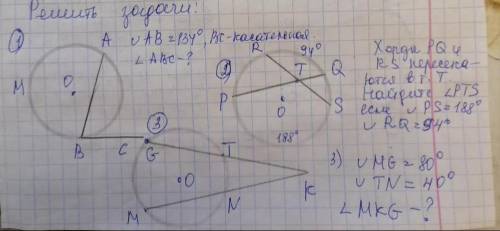 Решить задачи:
① ∪ AB = 134°, BC - касательная.
∠ABC - ?
A
M
O
B
C
②
R
94°
Q
T
P
O
S
188°
Хорды PQ и
RS пересека-
ются в т. T.
Найдите ∠PTS
если ∪ PS = 188°
∪ RQ = 94°
③
G
T
O
K
M
N
3) ∪ MG = 80°
∪ TN = 40°
∠ MKG - ?